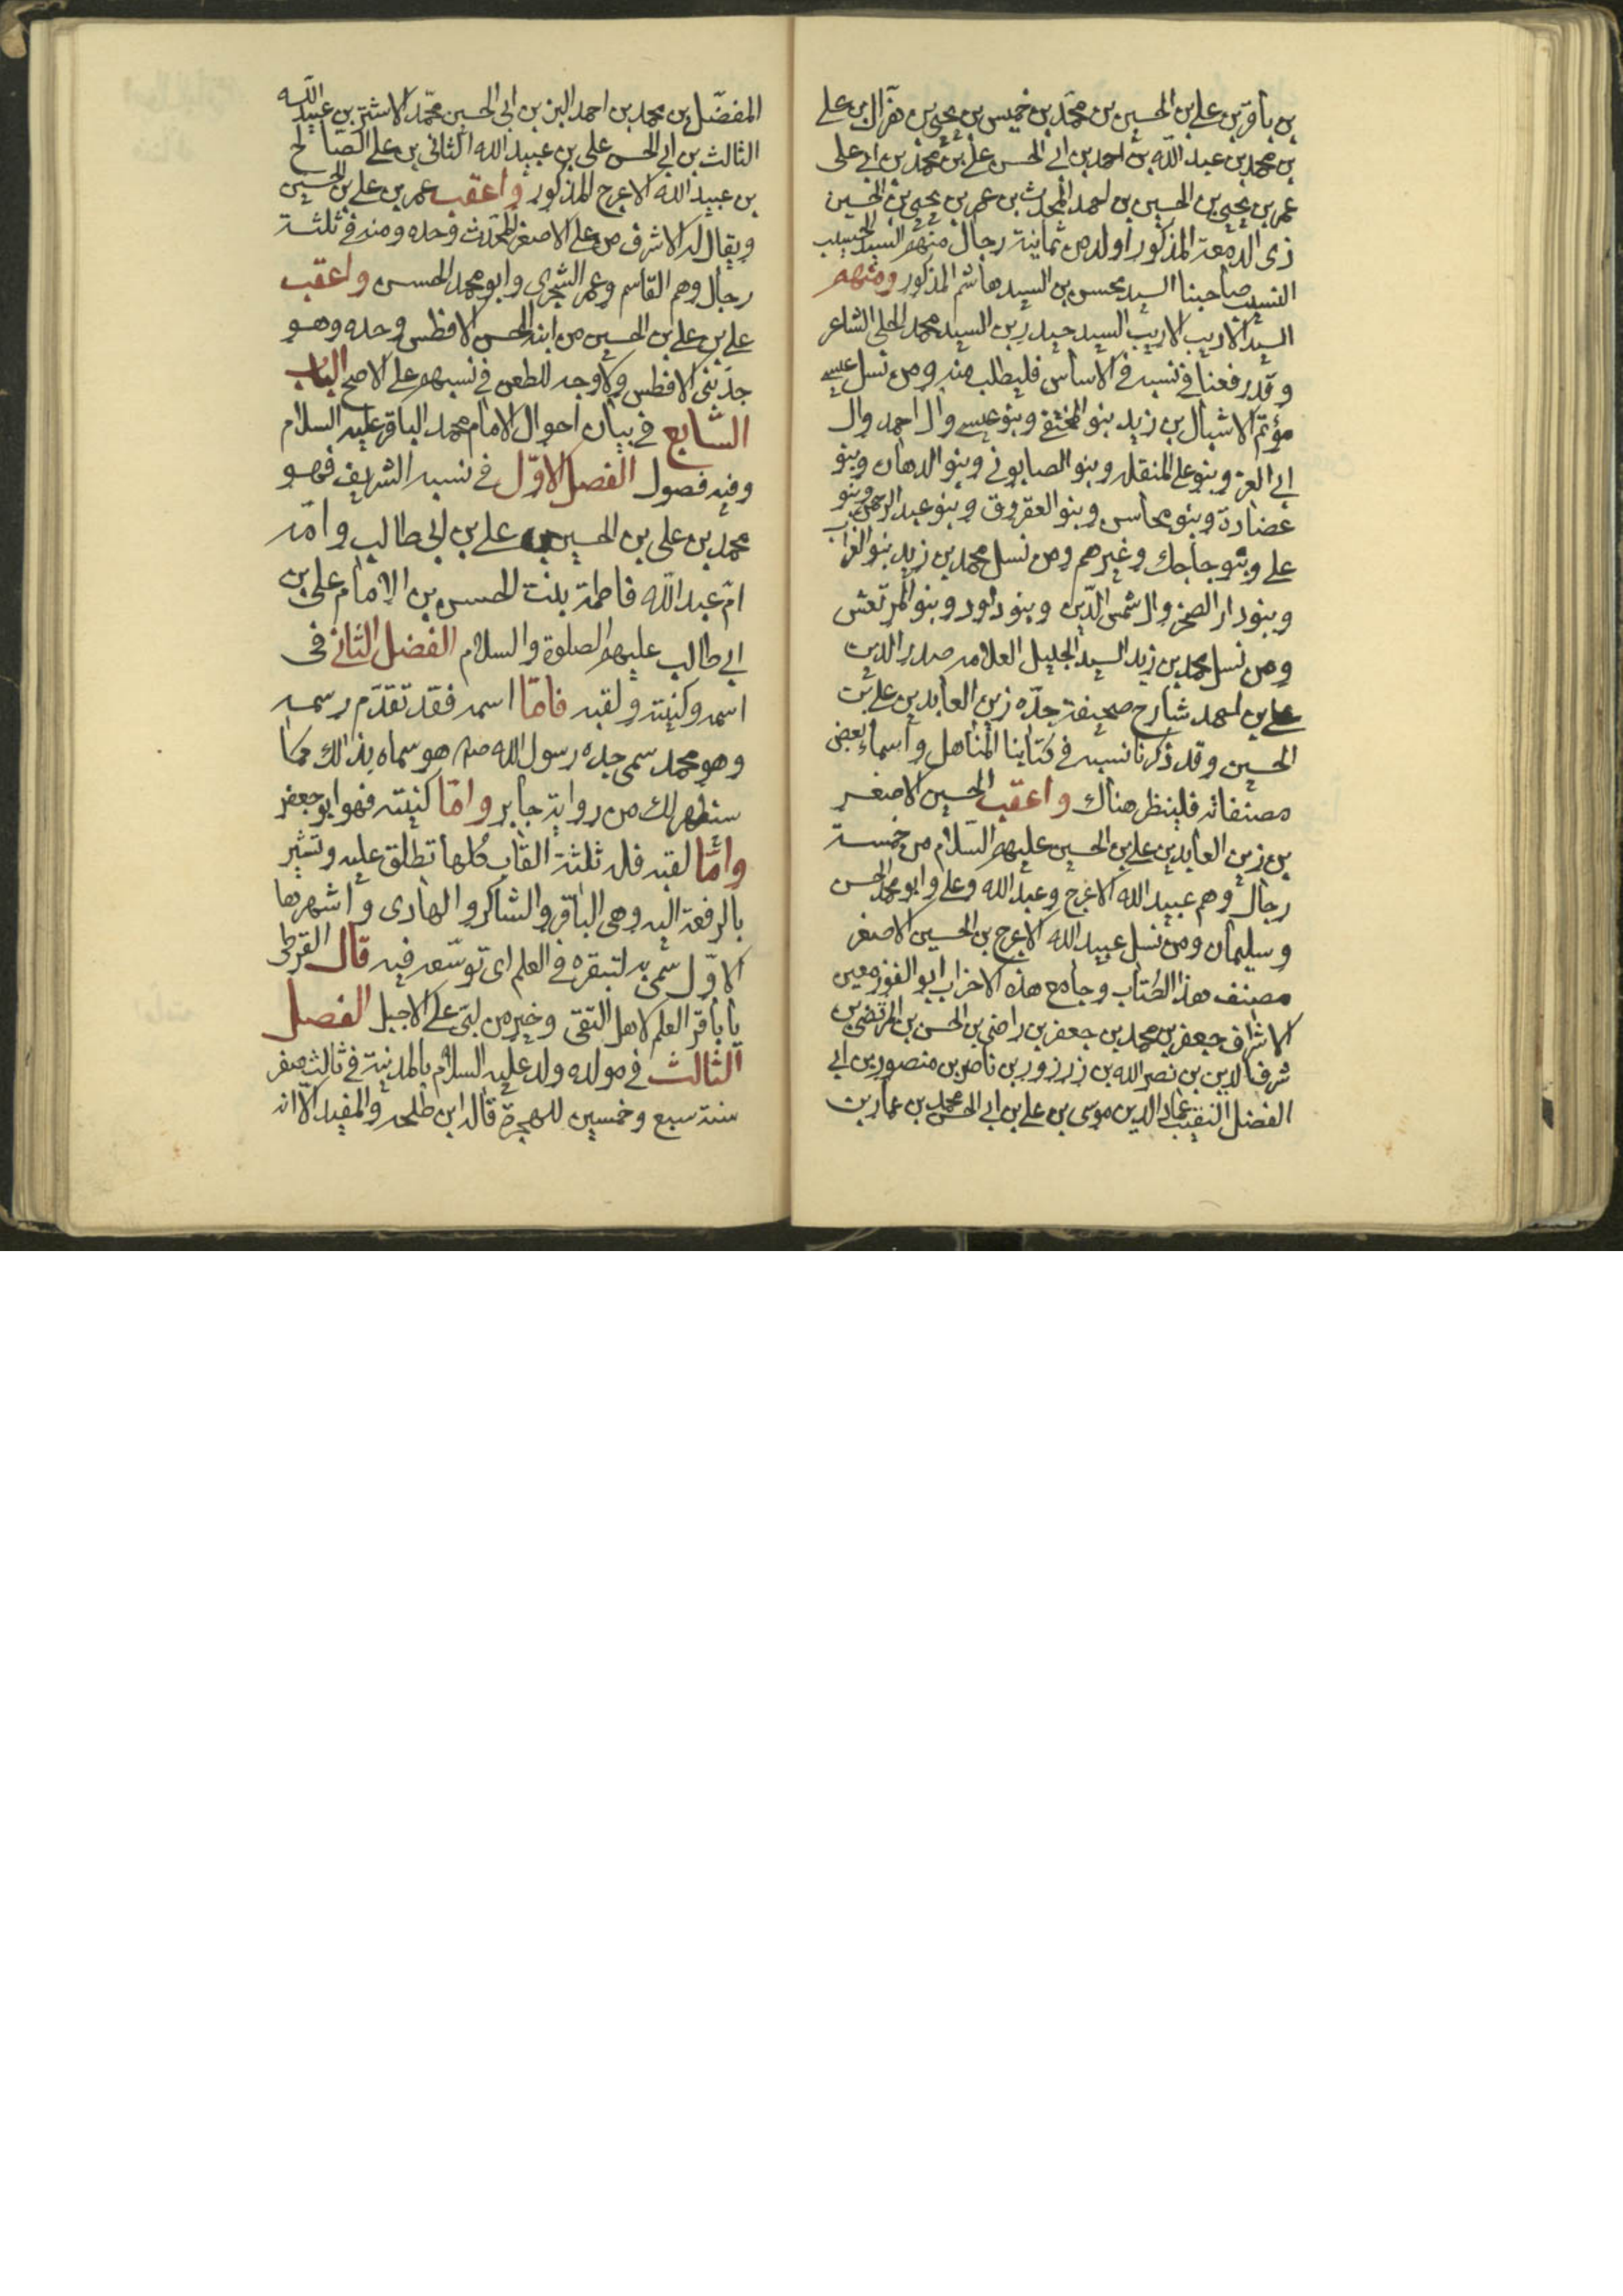 بن باقر بن علي بن الحسين بن محمد بن خميس بن يحيى بن هزال بن علي
بن محمد بن عبد الله بن احمد بن ابي الحسن علي بن محمد بن ابي علي
عمر بن يحيى بن الحسين بن احمد المحدث بن عمر بن يحيى بن الحسين
ذى الدمعة المذكور اولد من ثمانية رجال منهم السيد الحسيب
النسيب صاحبنا السيد محسن بن السيد هاشم المذكور ومنهم
السيد الاديب الاريب السيد حيدر بن السيد محمد الحلي الشاعر
وقد رفعنا في نسبه في الاساس فليطلب منه ومن نسل عيسى
مؤتم الاشبال بن زيد بنو المختفى وبنو عيسى وال احمد وال
ابي العز وبنو علي المنقله وبنو الصابوني وبنو الدهان وبنو
عضادة وبنو محاسن وبنو العقروق وبنو عبد الرحمن وبنو
علي وبنو جاجك وغيرهم ومن نسل محمد بن زيد بنو الغراب
وبنو دار الصخر وال شمس الدين وبنو داود وبنو المرتعش
ومن نسل محمد بن زيد السيد الجليل العلامه صدر الدين
علي بن احمد شارح صحيفة جده زين العابدين علي بن
الحسين وقد ذكرنا نسبه في كتابنا المناهل واسماء بعض
مصنفاته فلينظر هناك واعقب الحسين الاصغر
بن زين العابدين علي بن الحسين عليهم السلام من خمسة
رجال وهم عبيد الله الاعرج وعبد الله وعلي وابو محمد الحسن
وسليمان ومن نسل عبيد الله الاعرج بن الحسين الاصغر
مصنف هذا الكتاب وجامع هذه الاحزاب ابو الفوز معين
الاشراف جعفر بن محمد بن جعفر بن راضي بن الحسن بن المرتضى بن
شرف الدين بن نصر الله بن زرزور بن ناصر بن منصور بن ابي
الفضل النقيب عماد الدين موسى بن علي بن ابي الحسن محمد بن عمار بن
المفضل بن محمد بن احمد البن بن ابي الحسين محمد الاشتر بن عبيد الله
الثالث بن ابي الحسن علي بن عبيد الله الثاني بن علي الصالح
بن عبيد الله الاعرج المذكور واعقب عمر بن علي بن الحسين
ويقال له الاشرف من علي الاصغر المحدث وحده ومنه في ثلثة
رجال وهم القاسم وعمر الشجري وابو محمد الحسن واعقب
علي بن علي بن الحسين من ابنه الحسن الافطس وحده وهو
جد بني الافطس ولا وجه للطعن في نسبهم على الاصح الباب
السابع في بيان احوال الامام محمد الباقر عليه السلام
وفيه فصول الفصل الاول في نسبه الشريف فهو
محمد بن علي بن الحسين بن علي بن ابي طالب وامه
ام عبد الله فاطمة بنت الحسن بن الامام علي بن
ابي طالب عليهم الصلوة والسلام الفصل الثاني في
اسمه وكنيته ولقبه فاما اسمه فقد تقدم رسمه
وهو محمد سمي جده رسول الله صلم هو سماه بذالك مكا
ستظهر لك من رواية جابر واما كنيته فهو ابو جعفر
واما لقبه فله ثلثة القاب كلها تطلق عليه وتشير
بالرفعة اليه وهي الباقر والشاكر والهادى واشهرها
الاول سمي به لتبقره في العلم اى توسعه فيه قال القرظي
يا باقر العلم لاهل التقى وخير من لبى على الاجبل الفصل
الثالث في مولده ولد عليه السلام بالمدينة في ثالث صفر
سنة سبع وخمسين للهجرة قال ابن طلحه والمفيد الا انه